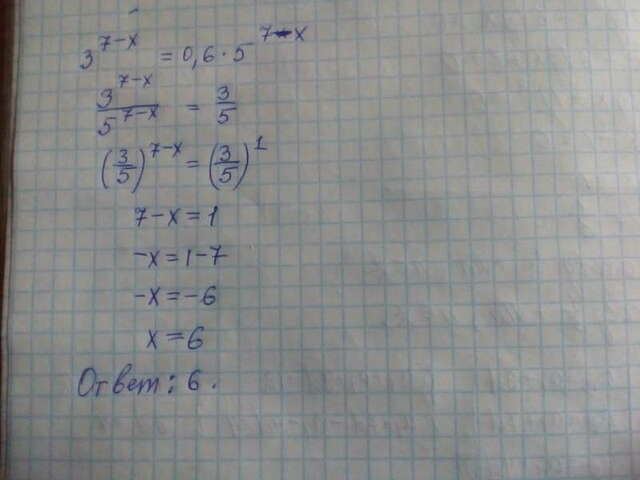 3^(7-x) = 0,6 · 5^(7-x)
3^(7-x) / 5^(7-x) = 3/5
(3/5)^(7-x) = (3/5)^1
7-x=1
-x=1-7
-x=-6
x=6
Ответ: 6.